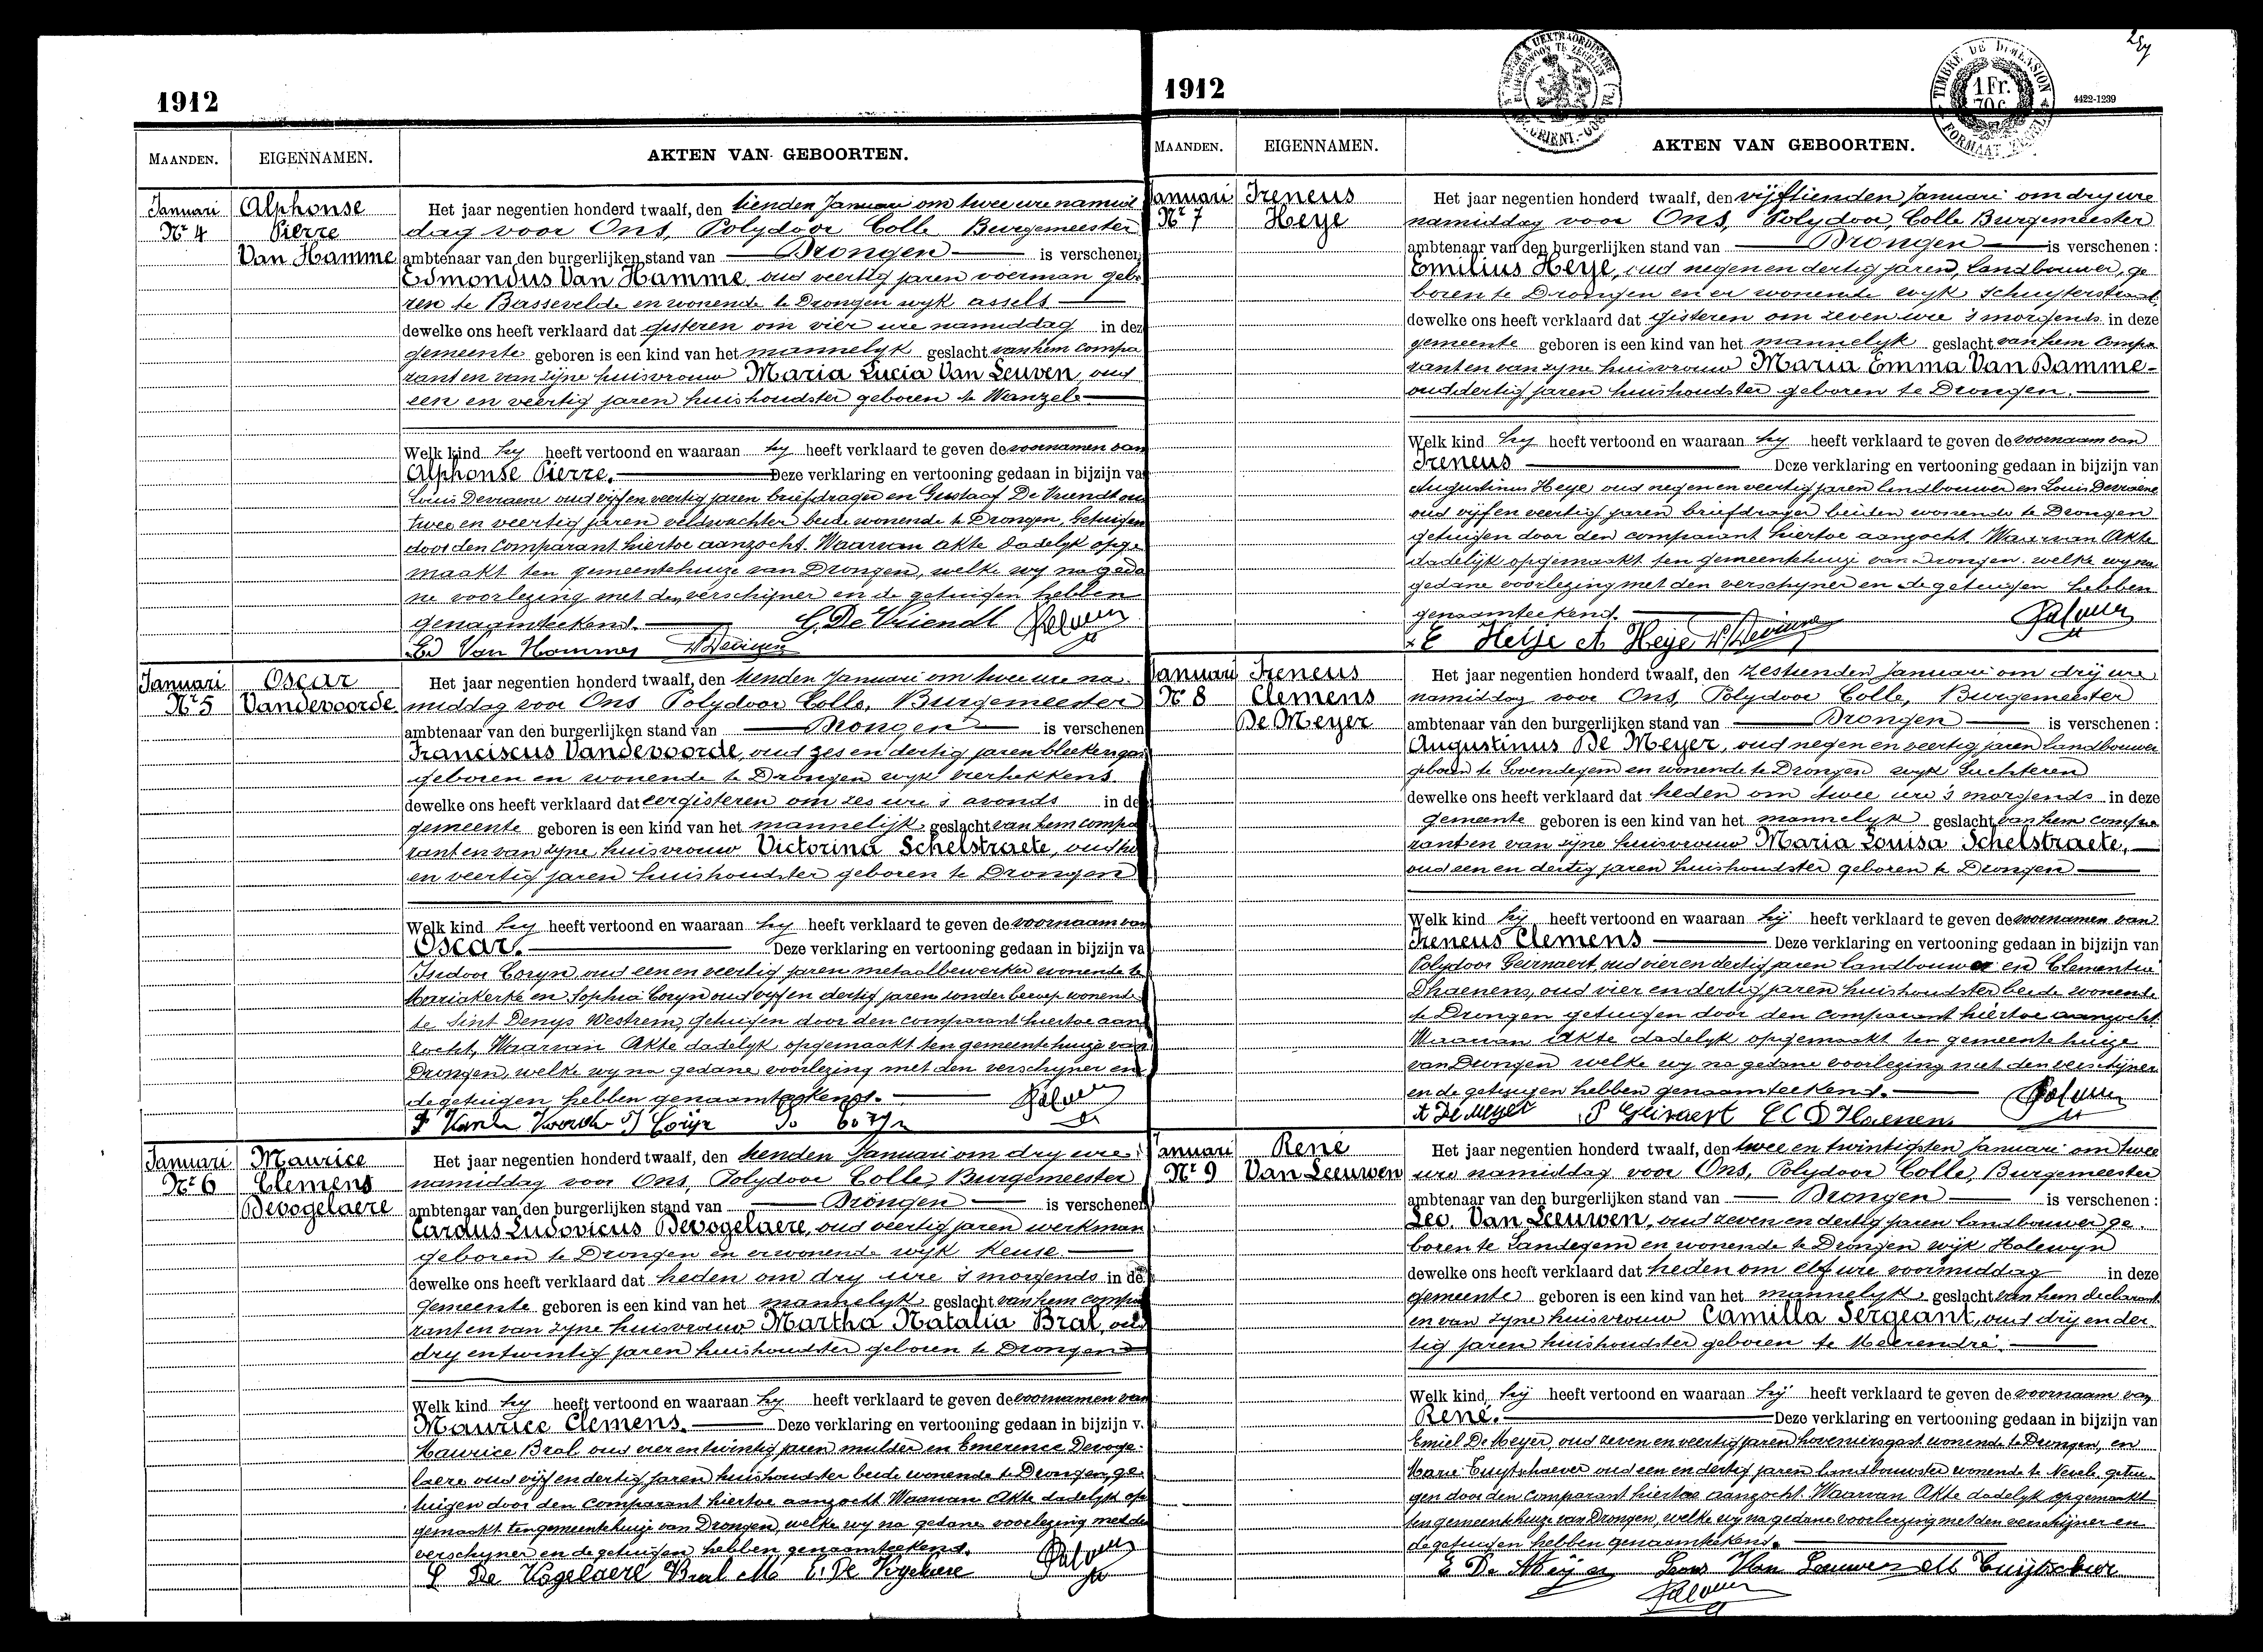 1912
MAANDEN. EIGENNAMEN. AKTEN VAN GEBOORTEN.
Januari Nr 4
Alphonse
Pierre
Van Hamme
Het jaar negentien honderd twaalf, den tienden Januari om twee ure namid
dag voor Ons, Polydoor Colle Burgemeester
ambtenaar van den burgerlijken stand van Drongen is verschenen
Edmondus Van Hamme oud veertig jaren voerman gebo
ren te Bassevelde en wonende te Drongen wyk assels
dewelke ons heeft verklaard dat gisteren om vier ure namiddag in dez
gemeente geboren is een kind van het mannelyk geslacht van hem compa
rant en van zijne huisvrouw Maria Lucia Van Leuven, oud
een en veertig jaren huishoudster geboren te Wanzele
Welk kind hy heeft vertoond en waaraan hy heeft verklaard te geven de voornamen van
Alphonse Pierre. Deze verklaring en vertooning gedaan in bijzijn va
Louis Devraene oud vijf en veertig jaren briefdrager en Gustaaf De Vriendt oud
twee en veertig jaren veldwachter beide wonende te Drongen, Getuigen
door den comparant hiertoe aanzocht. Waarvan akte dadelyk opge
maakt ten gemeentehuize van Drongen, welke wy na geda
ne voorlezing met den verschijner en de getuigen hebben
genaamteekend. G. De Vriendt
Ed Van Hamme
Januari Nr 5
Oscar
Vandevoorde
Het jaar negentien honderd twaalf, den tienden Januari om twee ure na
middag voor Ons Polydoor Colle, Burgemeester
ambtenaar van den burgerlijken stand van Drongen is verschenen
Franciscus Vandevoorde, oud zes en dertig jaren bleekersgas
geboren en wonende te Drongen wyk vierhekkens
dewelke ons heeft verklaard dat eergisteren om zes ure 's avonds in de
gemeente geboren is een kind van het mannelijk geslacht van hem compa
rant en van zyne huisvrouw Victorina Schelstraete, oud
en veertig jaren huishoudster geboren te Drongen
Welk kind hy heeft vertoond en waaraan hy heeft verklaard te geven de voornaam van
Oscar. Deze verklaring en vertooning gedaan in bijzijn va
Isidoor Coryn oud een en veertig jaren metaalbewerker wonende te
Mariakerke en Sophia Coryn oud vyf en dertig jaren zonder beroep wonende
te Sint Denys Westrem, getuigen door den comparant hiertoe aan
zocht, Waarvan Akte dadelyk opgemaakt ten gemeentehuize van
Drongen, welke wy na gedane voorlezing met den verschyner en
de getuigen hebben genaamteekend.
Januari Nr 6
Maurice
Clemens
Devogelaere
Het jaar negentien honderd twaalf, den tienden Januari om dry ure
namiddag voor Ons, Polydoor Colle, Burgemeester
ambtenaar van den burgerlijken stand van Drongen is verschenen
Carolus Ludovicus Devogelaere, oud veertig jaren werkman
geboren te Drongen en er wonende wyk Keuse
dewelke ons heeft verklaard dat heden om dry ure 's morgends in de
gemeente geboren is een kind van het mannelyk geslacht van hem compa
rant en van zyne huisvrouw Martha Natalia Bral, oud
dry en twintig jaren huishoudster geboren te Drongen
Welk kind hy heeft vertoond en waaraan hy heeft verklaard te geven de voornamen van
Maurice Clemens. Deze verklaring en vertooning gedaan in bijzijn v.
Maurice Bral oud vier en twintig jaren mulder en Emerence Devoge
laere oud vijf en dertig jaren huishoudster beide wonende te Drongen, ge
tuigen door den comparant hiertoe aanzocht Waarvan Akte dadelyk op
gemaakt ten gemeentehuize van Drongen, welke wy na gedane voorlezing met de
verschyner en de getuigen hebben genaamteekend.
De Vogelaere Bral M E. De Vogelaere
1912
4422-1239
TIMBRE DE DIMENSION
1 Fr. 70 c.
MAANDEN. EIGENNAMEN. AKTEN VAN GEBOORTEN.
Januari Nr 7
Ireneus
Heye
Het jaar negentien honderd twaalf, den vijftienden Januari om dry ure
namiddag voor Ons, Polydoor, Colle Burgemeester
ambtenaar van den burgerlijken stand van Drongen is verschenen :
Emilius Heye, oud negen en dertig jaren, landbouwer, ge
boren te Drongen en er wonende wyk Schuyterstraat,
dewelke ons heeft verklaard dat gisteren om zeven ure 's morgends in deze
gemeente geboren is een kind van het mannelyk geslacht van hem compa
rant en van zyne huisvrouw Maria Emma Van Damme
oud dertig jaren huishoudster geboren te Drongen.
Welk kind hy heeft vertoond en waaraan hy heeft verklaard te geven de voornaam van
Ireneus Deze verklaring en vertooning gedaan in bijzijn van
Augustinus Heye oud negen en veertig jaren landbouwer en Louis Devraene
oud vyf en veertig jaren briefdrager beiden wonende te Drongen
getuigen door den comparant hiertoe aanzocht Waarvan Akte
dadelyk opgemaakt ten gemeentehuize van Drongen. welke wy na
gedane voorlezing met den verschyner en de getuigen hebben
genaamteekend.
E Heije A Heye
Januari Nr 8
Ireneus
Clemens
De Meyer
Het jaar negentien honderd twaalf, den zestienden Januari om drij ure
namiddag voor Ons, Polydoor Colle, Burgemeester
ambtenaar van den burgerlijken stand van Drongen is verschenen :
Augustinus De Meyer, oud negen en veertig jaren landbouwer
geboren te Lovendegem en wonende te Drongen wyk Luchteren
dewelke ons heeft verklaard dat heden om twee ure 's morgends in deze
gemeente geboren is een kind van het mannelyk geslacht van hem compa
rant en van zyne huisvrouw Maria Louisa Schelstraete,
oud een en dertig jaren huishoudster geboren te Drongen
Welk kind hij heeft vertoond en waaraan hij heeft verklaard te geven de voornamen van
Ireneus Clemens Deze verklaring en vertooning gedaan in bijzijn van
Polydoor Geirnaert, oud vier en dertig jaren landbouwer en Clementine
Dhaenens, oud vier en dertig jaren huishoudster beide wonende
te Drongen getuigen door den comparant hiertoe aangezocht
Waarvan Akte dadelyk opgemaakt ten gemeentehuize
van Drongen welke wy na gedane voorlezing met den verschijner
en de getuigen hebben genaamteekend.
A De Meyer P Geirnaert E C D'Haenens
Januari Nr 9
René
Van Leeuwen
Het jaar negentien honderd twaalf, den twee en twintigsten Januari om twee
ure namiddag voor Ons, Polydoor Colle, Burgemeester
ambtenaar van den burgerlijken stand van Drongen is verschenen :
Leo. Van Leeuwen, oud zeven en dertig jaren landbouwer ge
boren te Landegem en wonende te Drongen wijk Halewyn
dewelke ons heeft verklaard dat heden om elf ure voormiddag in deze
gemeente geboren is een kind van het mannelyk geslacht van hem declarant
en van zyne huisvrouw Camilla Sergeant, oud drij en der
tig jaren huishoudster geboren te Meerendré.
Welk kind hij heeft vertoond en waaraan hij heeft verklaard te geven de voornaam van
René. Deze verklaring en vertooning gedaan in bijzijn van
Emiel De Meyer, oud zeven en veertig jaren hoveniersgast wonende te Drongen, en
Marie Cuytschaever oud een en dertig jaren landbouwster wonende te Nevele, getui
gen door den comparant hiertoe aanzocht. Waarvan Akte dadelyk opgemaakt
ten gemeentehuize van Drongen, welke wij na gedane voorlezing met den verschijner en
de getuigen hebben genaamteekend.
E De Meijer Van Leeuwen